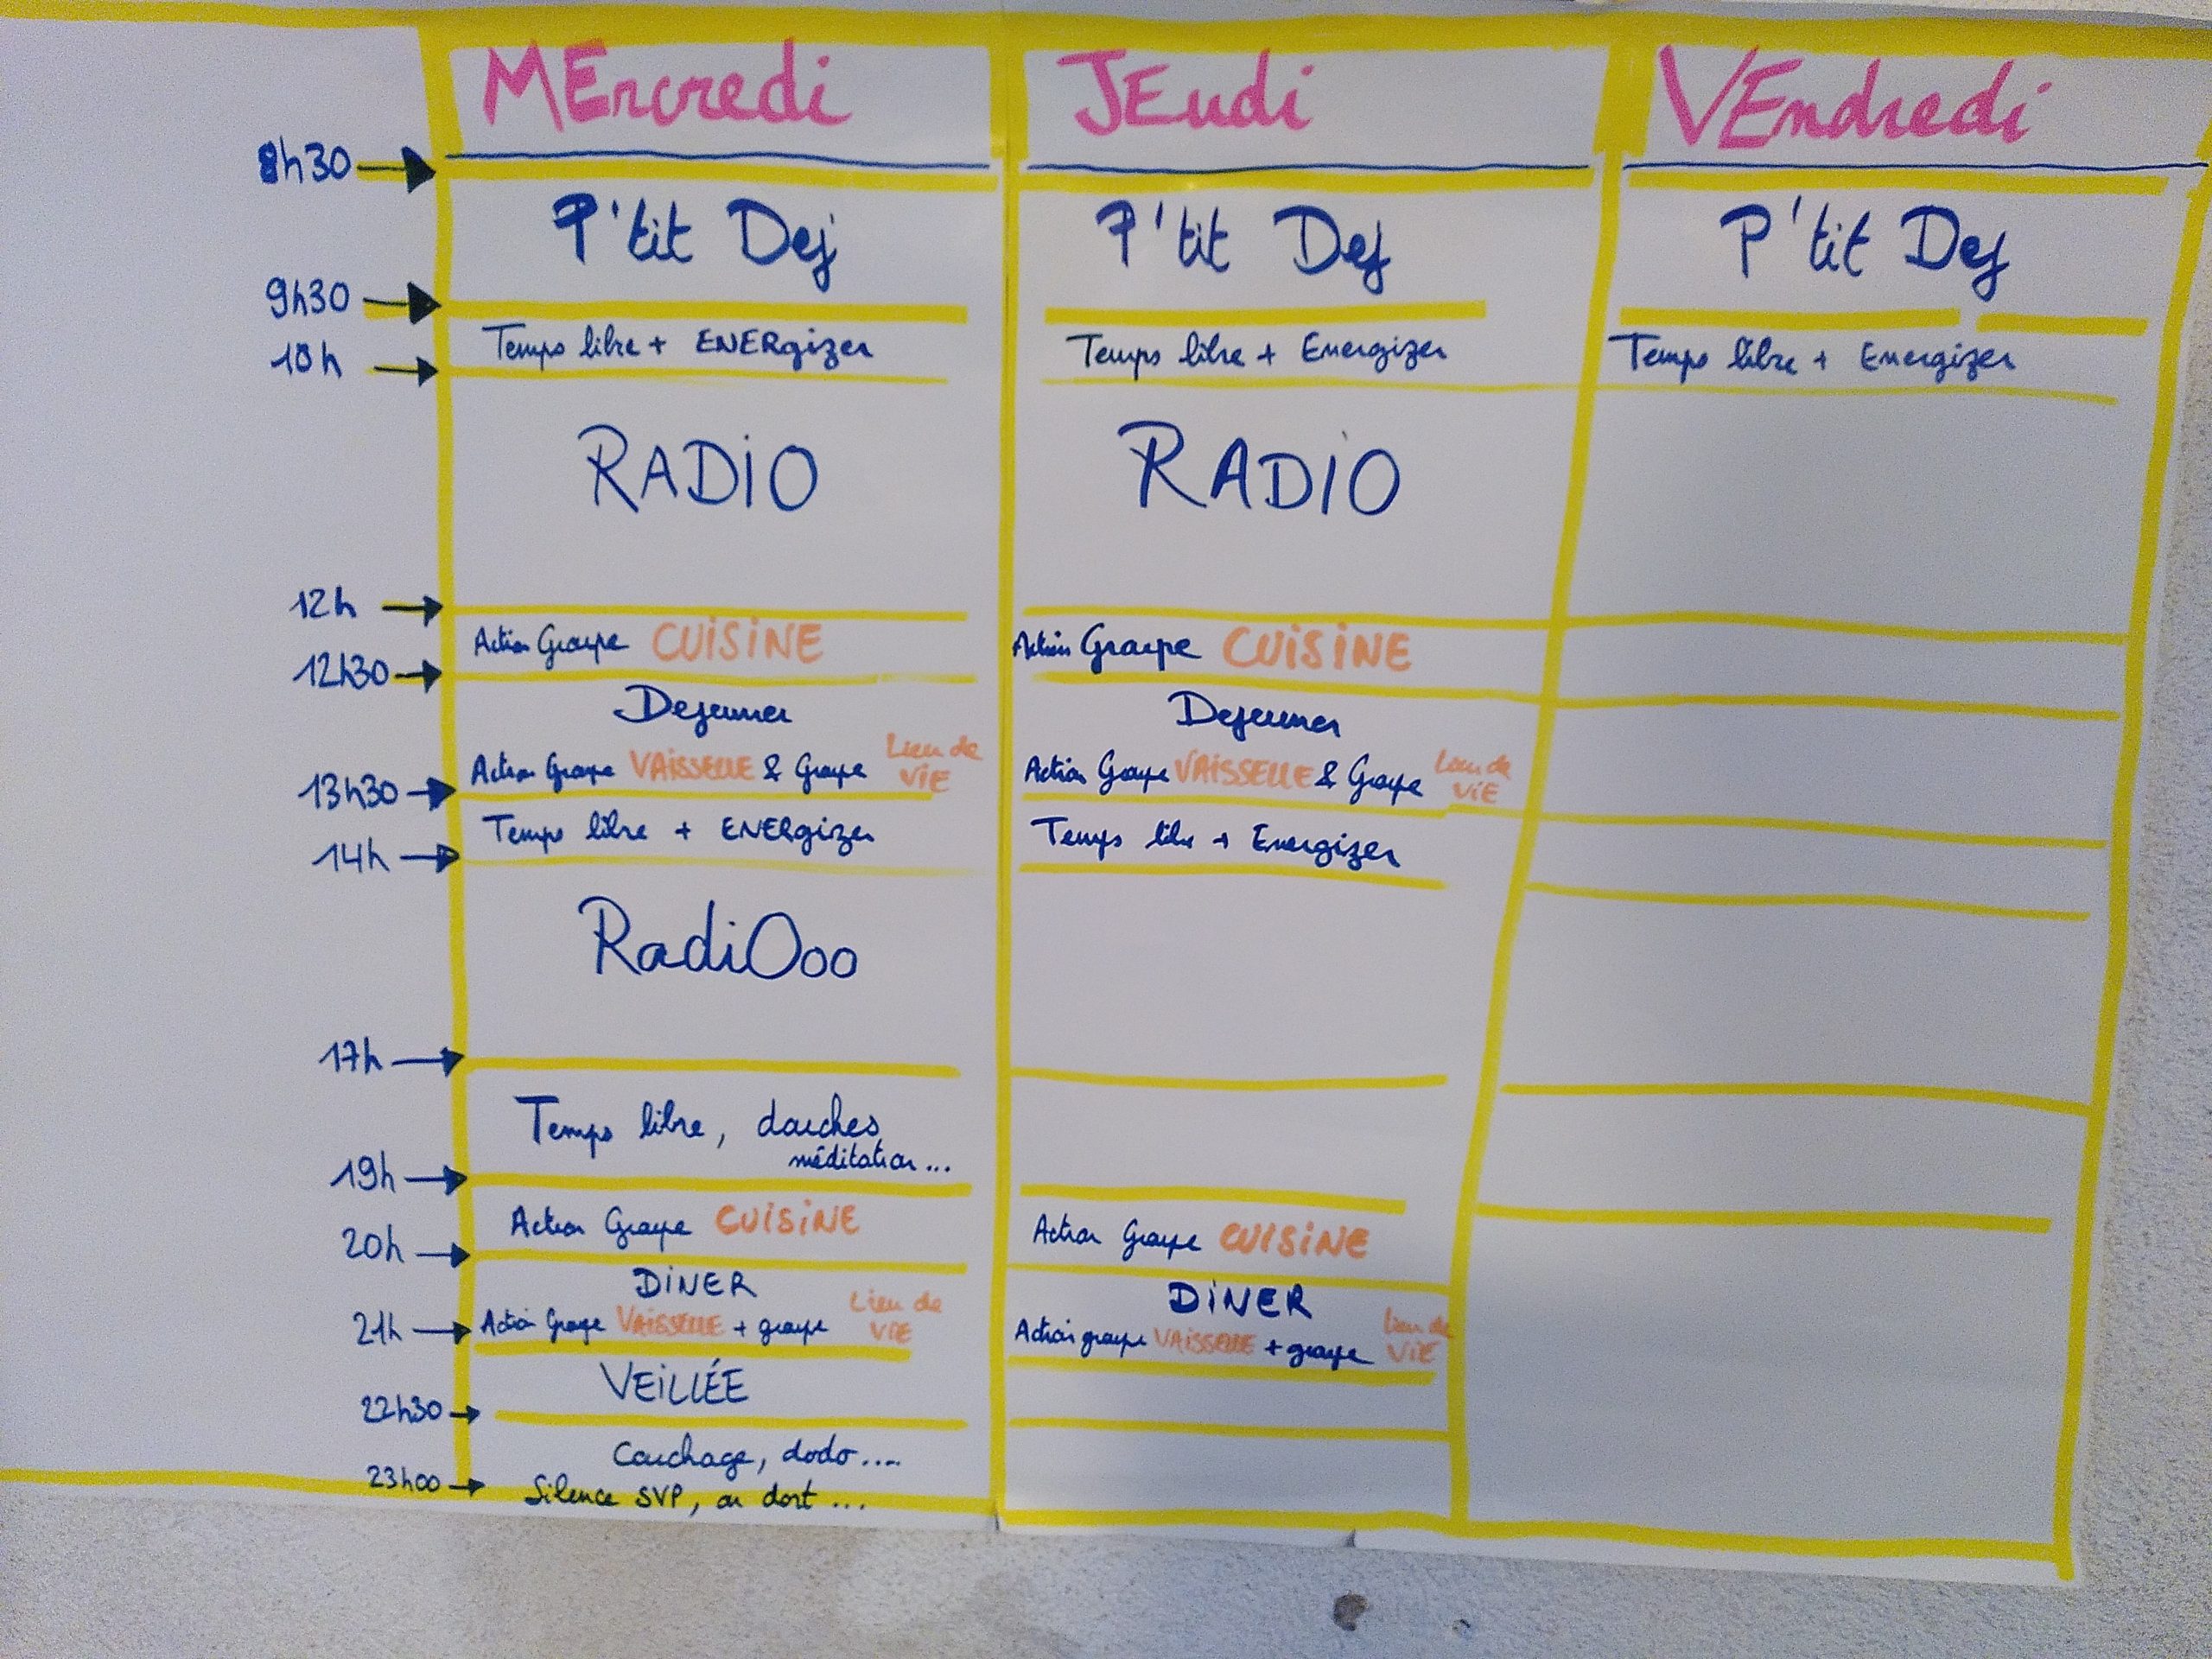 MErcredi JEudi VEndredi
8h30
P'tit Dej P'tit Dej P'tit Dej
9h30
Temps libre + ENERgizer Temps libre + Energizer Temps libre + Energizer
10h
RADiO RADIO
12h
Action Groupe CUISINE Action Groupe CUISINE
12h30
Dejeuner Dejeuner
Action Groupe VAISSELLE & Groupe Lieu de ViE Action Groupe VAISSELLE & Groupe Lieu de ViE
13h30
Temps libre + ENERgizer Temps libre + Energizer
14h
RadiOoo
17h
Temps libre, douches
méditation...
19h
Action Groupe CUISINE Action Groupe CUISINE
20h
DiNER DiNER
21h
Action Groupe VAISSELLE + groupe Lieu de ViE Action groupe VAISSELLE + groupe Lieu de ViE
VEiLLÉE
22h30
Couchage, dodo....
23h00
Silence SVP, on dort ...